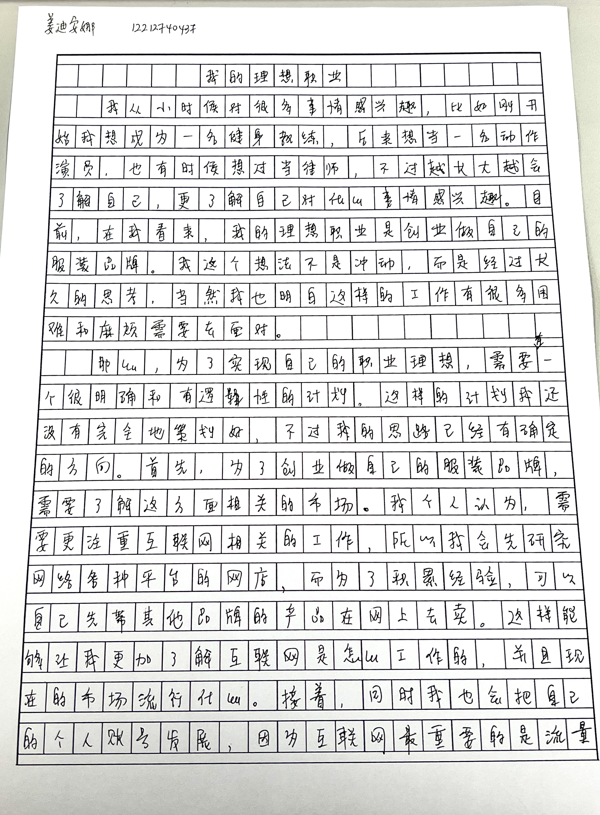 姜迪安娜 12212740437
我的理想职业
我从小时候对很多事情感兴趣，比如刚开
始我想成为一名健身教练，后来想当一名动作
演员，也有时侯想过当律师，不过越长大越会
了解自己，更了解自己对什么事情感兴趣。目
前，在我看来，我的理想职业是创业做自己的
服装品牌。我这个想法不是冲动，而是经过长
久的思考，当然我也明白这样的工作有很多困
难和麻烦需要去面对。
那么，为了实现自己的职业理想，需要一
个很明确和有逻辑性的计划。这样的计划我还
没有完全地策划好，不过我的思路已经有确定
的方向。首先，为了创业做自己的服装品牌，
需要了解这方面相关的市场。我个人认为，需
要更注重互联网相关的工作，所以我会先研究
网络各种平台的网店，而为了积累经验，可以
自己先带其他品牌的产品在网上去卖。这样能
够让我更加了解互联网是怎么工作的，并且现
在的市场流行什么。接着，同时我也会把自己
的个人账号发展，因为互联网最重要的是流量